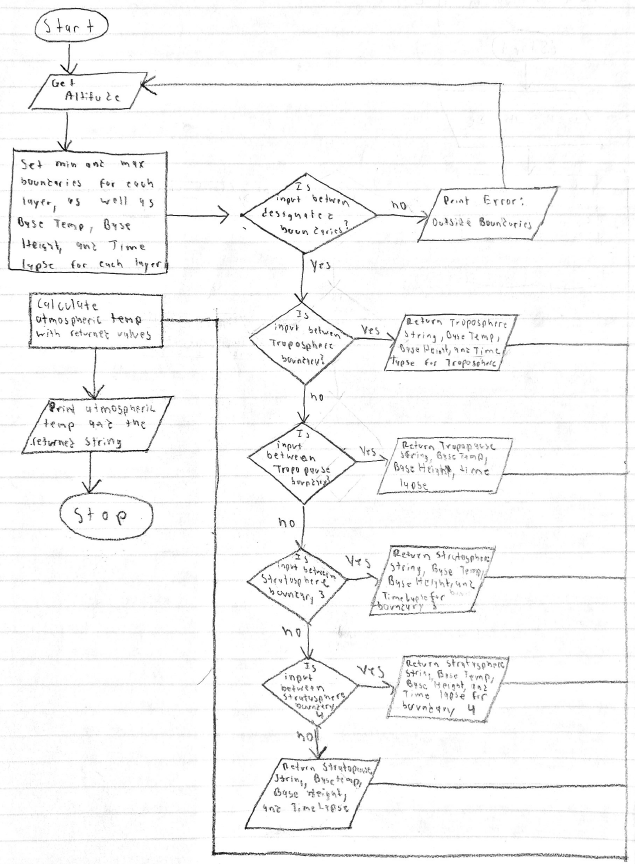 Start
Get
Altitude
Set min and max
boundaries for each
layer, as well as
Base Temp, Base
Height, and Time
lapse for each layer
Is
input between
designated
boundaries?
no
Print Error:
Outside Boundaries
Yes
Is
input between
Troposphere
boundary?
Yes
Return Troposphere
String, Base Temp,
Base Height, and Time
lapse for Troposphere
no
Is
input
between
Tropopause
boundary?
Yes
Return Tropopause
String, Base Temp,
Base Height, time
lapse
no
Is
input between
Stratosphere
boundary 3
Yes
Return Stratosphere
String, Base Temp,
Base Height, and
Time lapse for
boundary 3
no
Is
input
between
Stratosphere
boundary
4
Yes
Return Stratosphere
String, Base Temp,
Base Height, and
Time lapse for
boundary 4
no
Return Stratopause
String, Base Temp,
Base Height,
and Time Lapse
Calculate
atmospheric temp
with returned values
Print atmospheric
temp and the
returned string
Stop